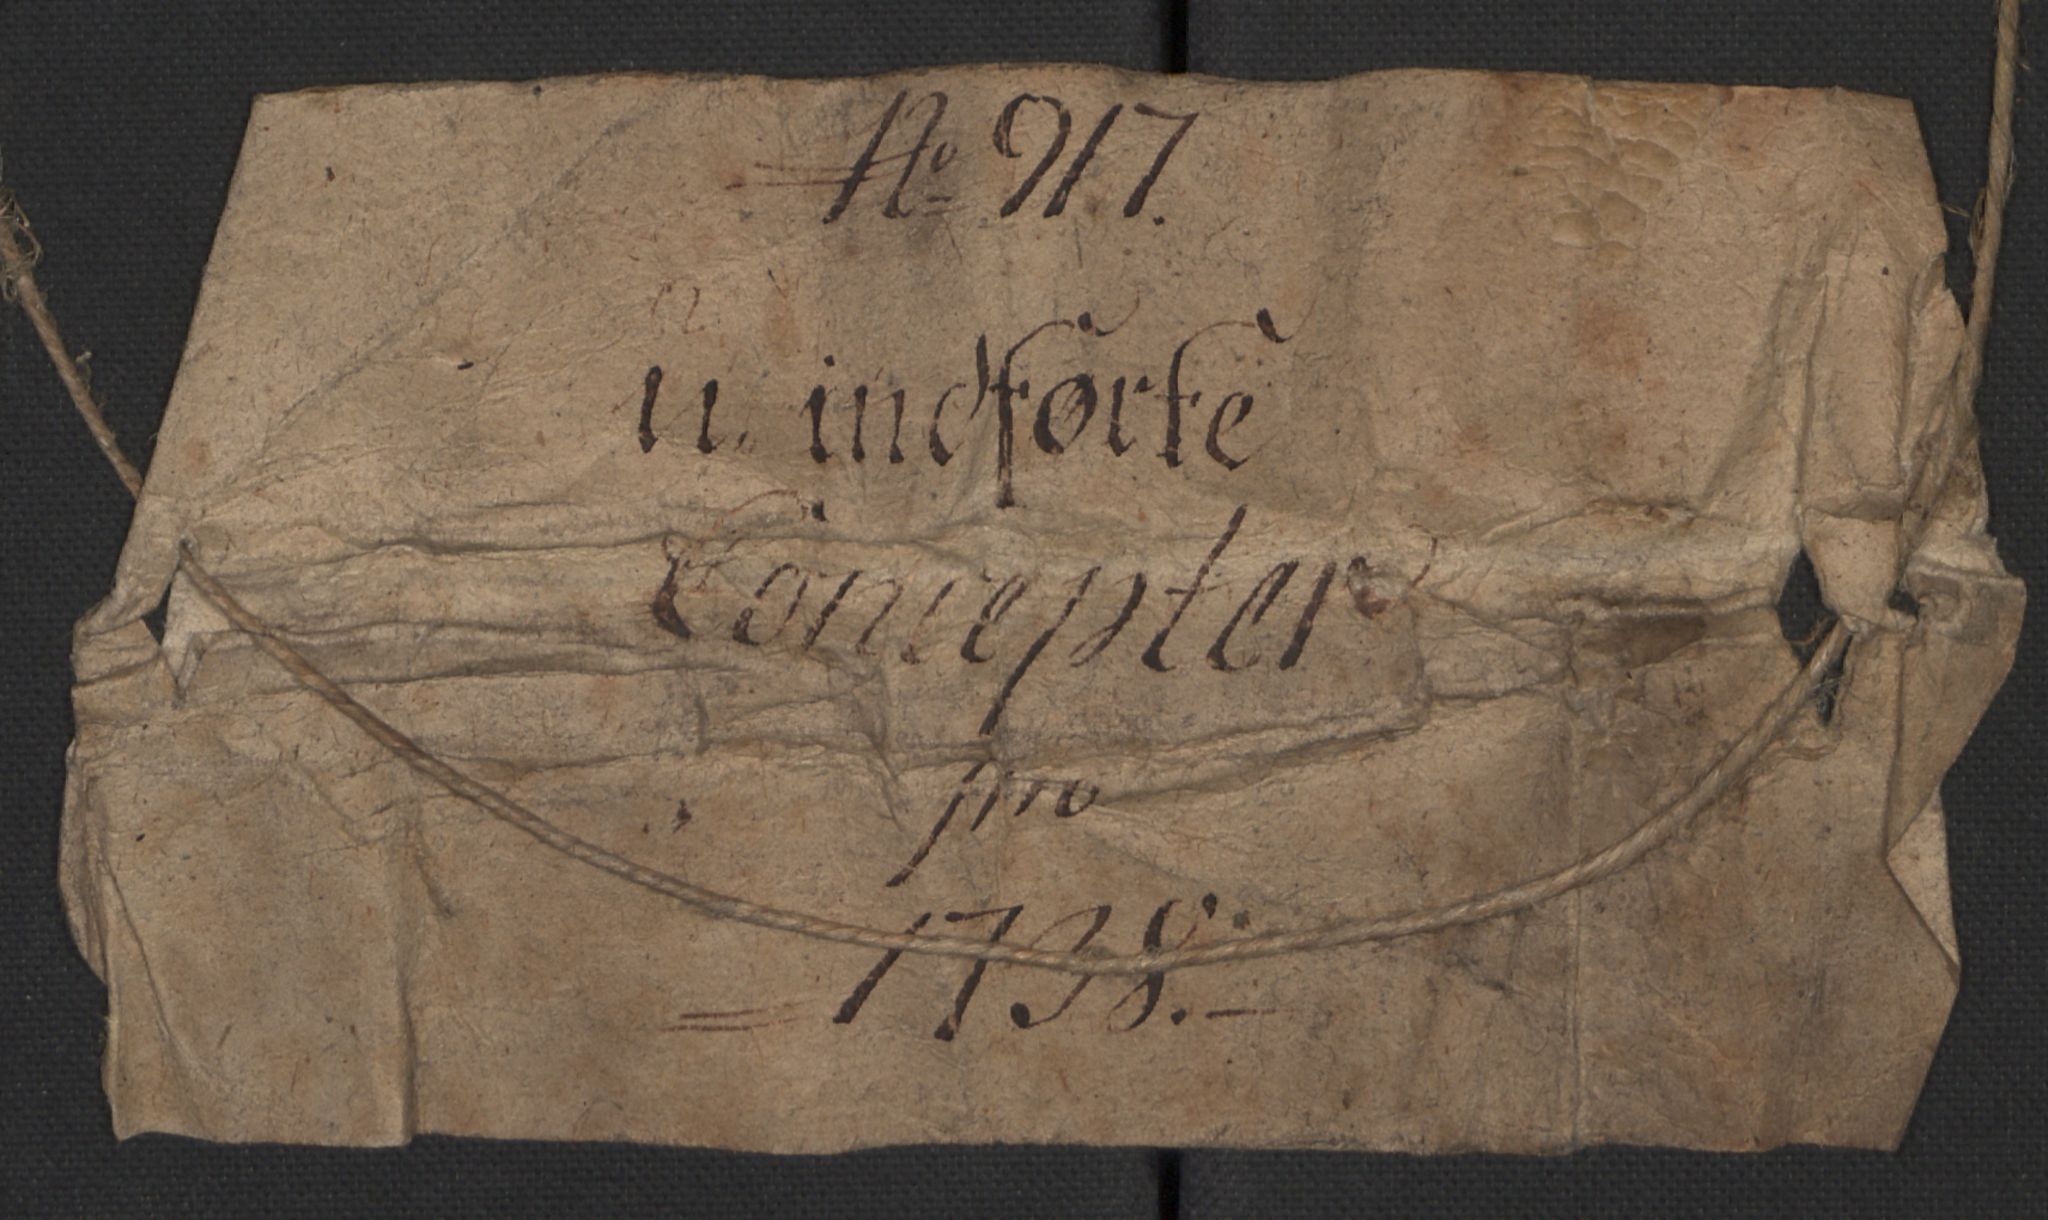 No 917.
u. indførte
Concepter
pro
1738.